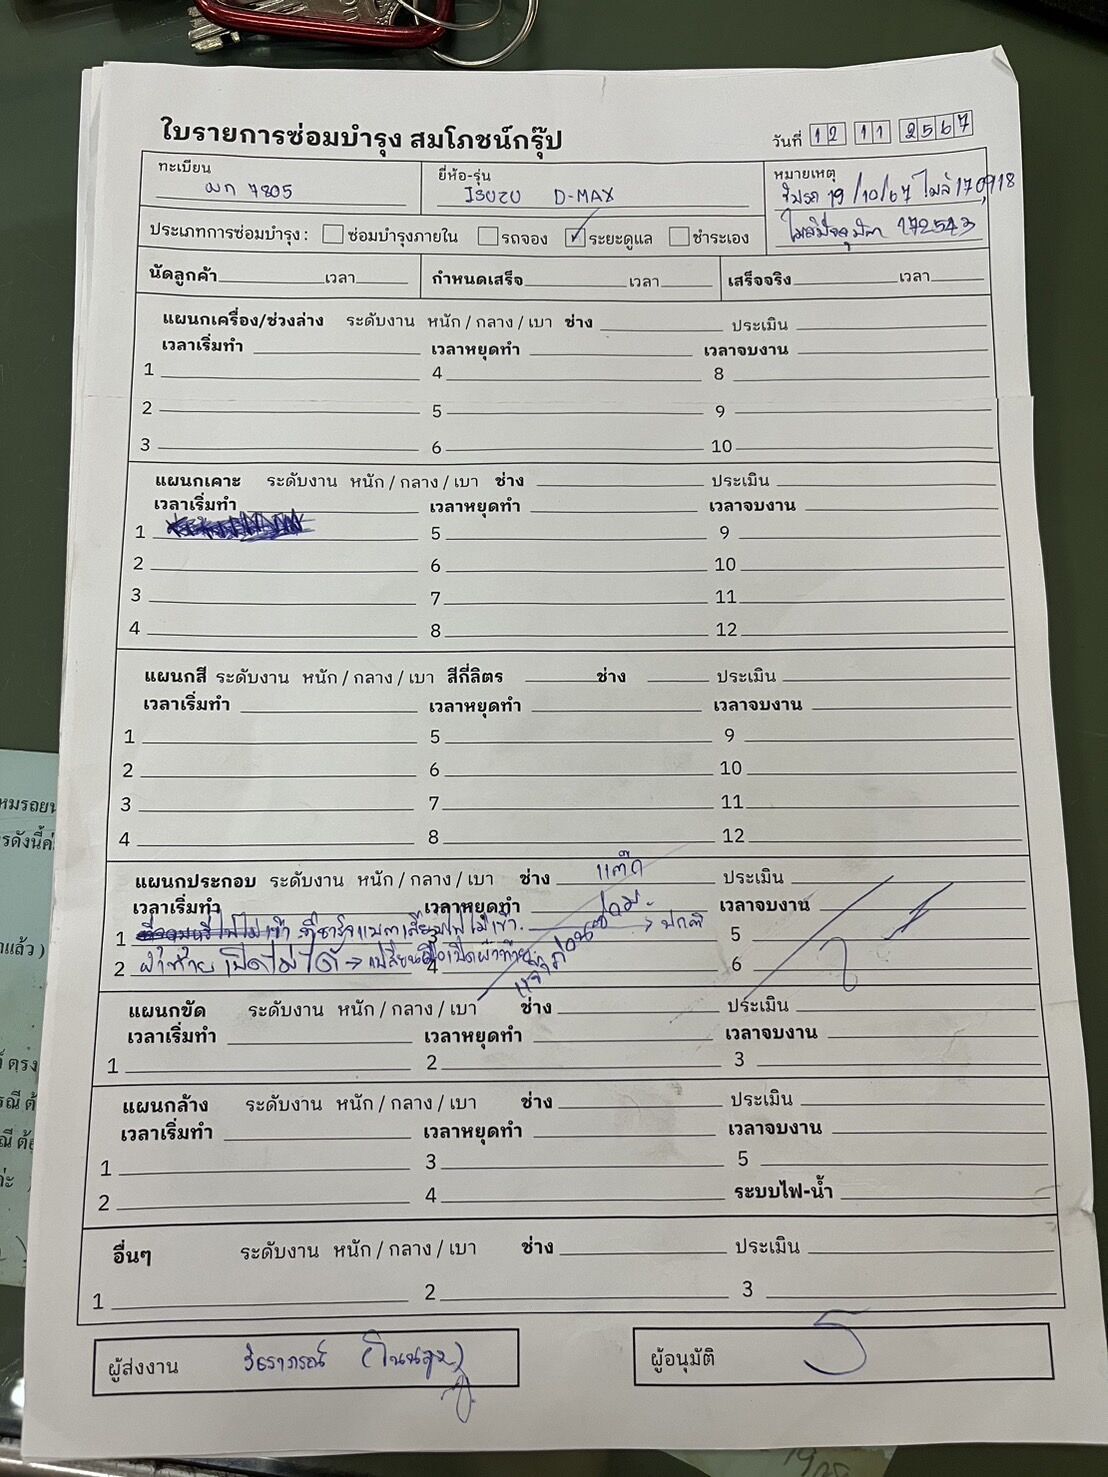 ใบรายการซ่อมบำรุง สมโภชน์กรุ๊ป
วันที่ 12 11 2567
ทะเบียน
ผก 7805
ยี่ห้อ-รุ่น
ISUZU D-MAX
หมายเหตุ
รับรถ 19/10/67 ไมล์ 170,918
ไมล์ปัจจุบัน 172543
ประเภทการซ่อมบำรุง : ซ่อมบำรุงภายใน รถจอง ✓ ระยะดูแล ชำระเอง
นัดลูกค้า เวลา กำหนดเสร็จ เวลา เสร็จจริง เวลา
แผนกเครื่อง/ช่วงล่าง ระดับงาน หนัก / กลาง / เบา ช่าง ประเมิน
เวลาเริ่มทำ เวลาหยุดทำ เวลาจบงาน
1 4 8
2 5 9
3 6 10
แผนกเคาะ ระดับงาน หนัก / กลาง / เบา ช่าง ประเมิน
เวลาเริ่มทำ เวลาหยุดทำ เวลาจบงาน
1 5 9
2 6 10
3 7 11
4 8 12
แผนกสี ระดับงาน หนัก / กลาง / เบา สีกี่ลิตร ช่าง ประเมิน
เวลาเริ่มทำ เวลาหยุดทำ เวลาจบงาน
1 5 9
2 6 10
3 7 11
4 8 12
แผนกประกอบ ระดับงาน หนัก / กลาง / เบา ช่าง แต๊ก ประเมิน
เวลาเริ่มทำ เวลาหยุดทำ เวลาจบงาน
1 ไฟไม่เข้า ที่ชาร์จแบตเสียบไฟไม่เข้า. → ปกติ 5
2 ฝาท้าย เปิดไม่ได้ → เปลี่ยนมือเปิดฝาท้าย 4 6
แจ้งก่อนซ่อม
แผนกขัด ระดับงาน หนัก / กลาง / เบา ช่าง ประเมิน
เวลาเริ่มทำ เวลาหยุดทำ เวลาจบงาน
1 2 3
แผนกล้าง ระดับงาน หนัก / กลาง / เบา ช่าง ประเมิน
เวลาเริ่มทำ เวลาหยุดทำ เวลาจบงาน
1 3 5
2 4 ระบบไฟ-น้ำ
อื่นๆ ระดับงาน หนัก / กลาง / เบา ช่าง ประเมิน
1 2 3
ผู้ส่งงาน
ผู้อนุมัติ